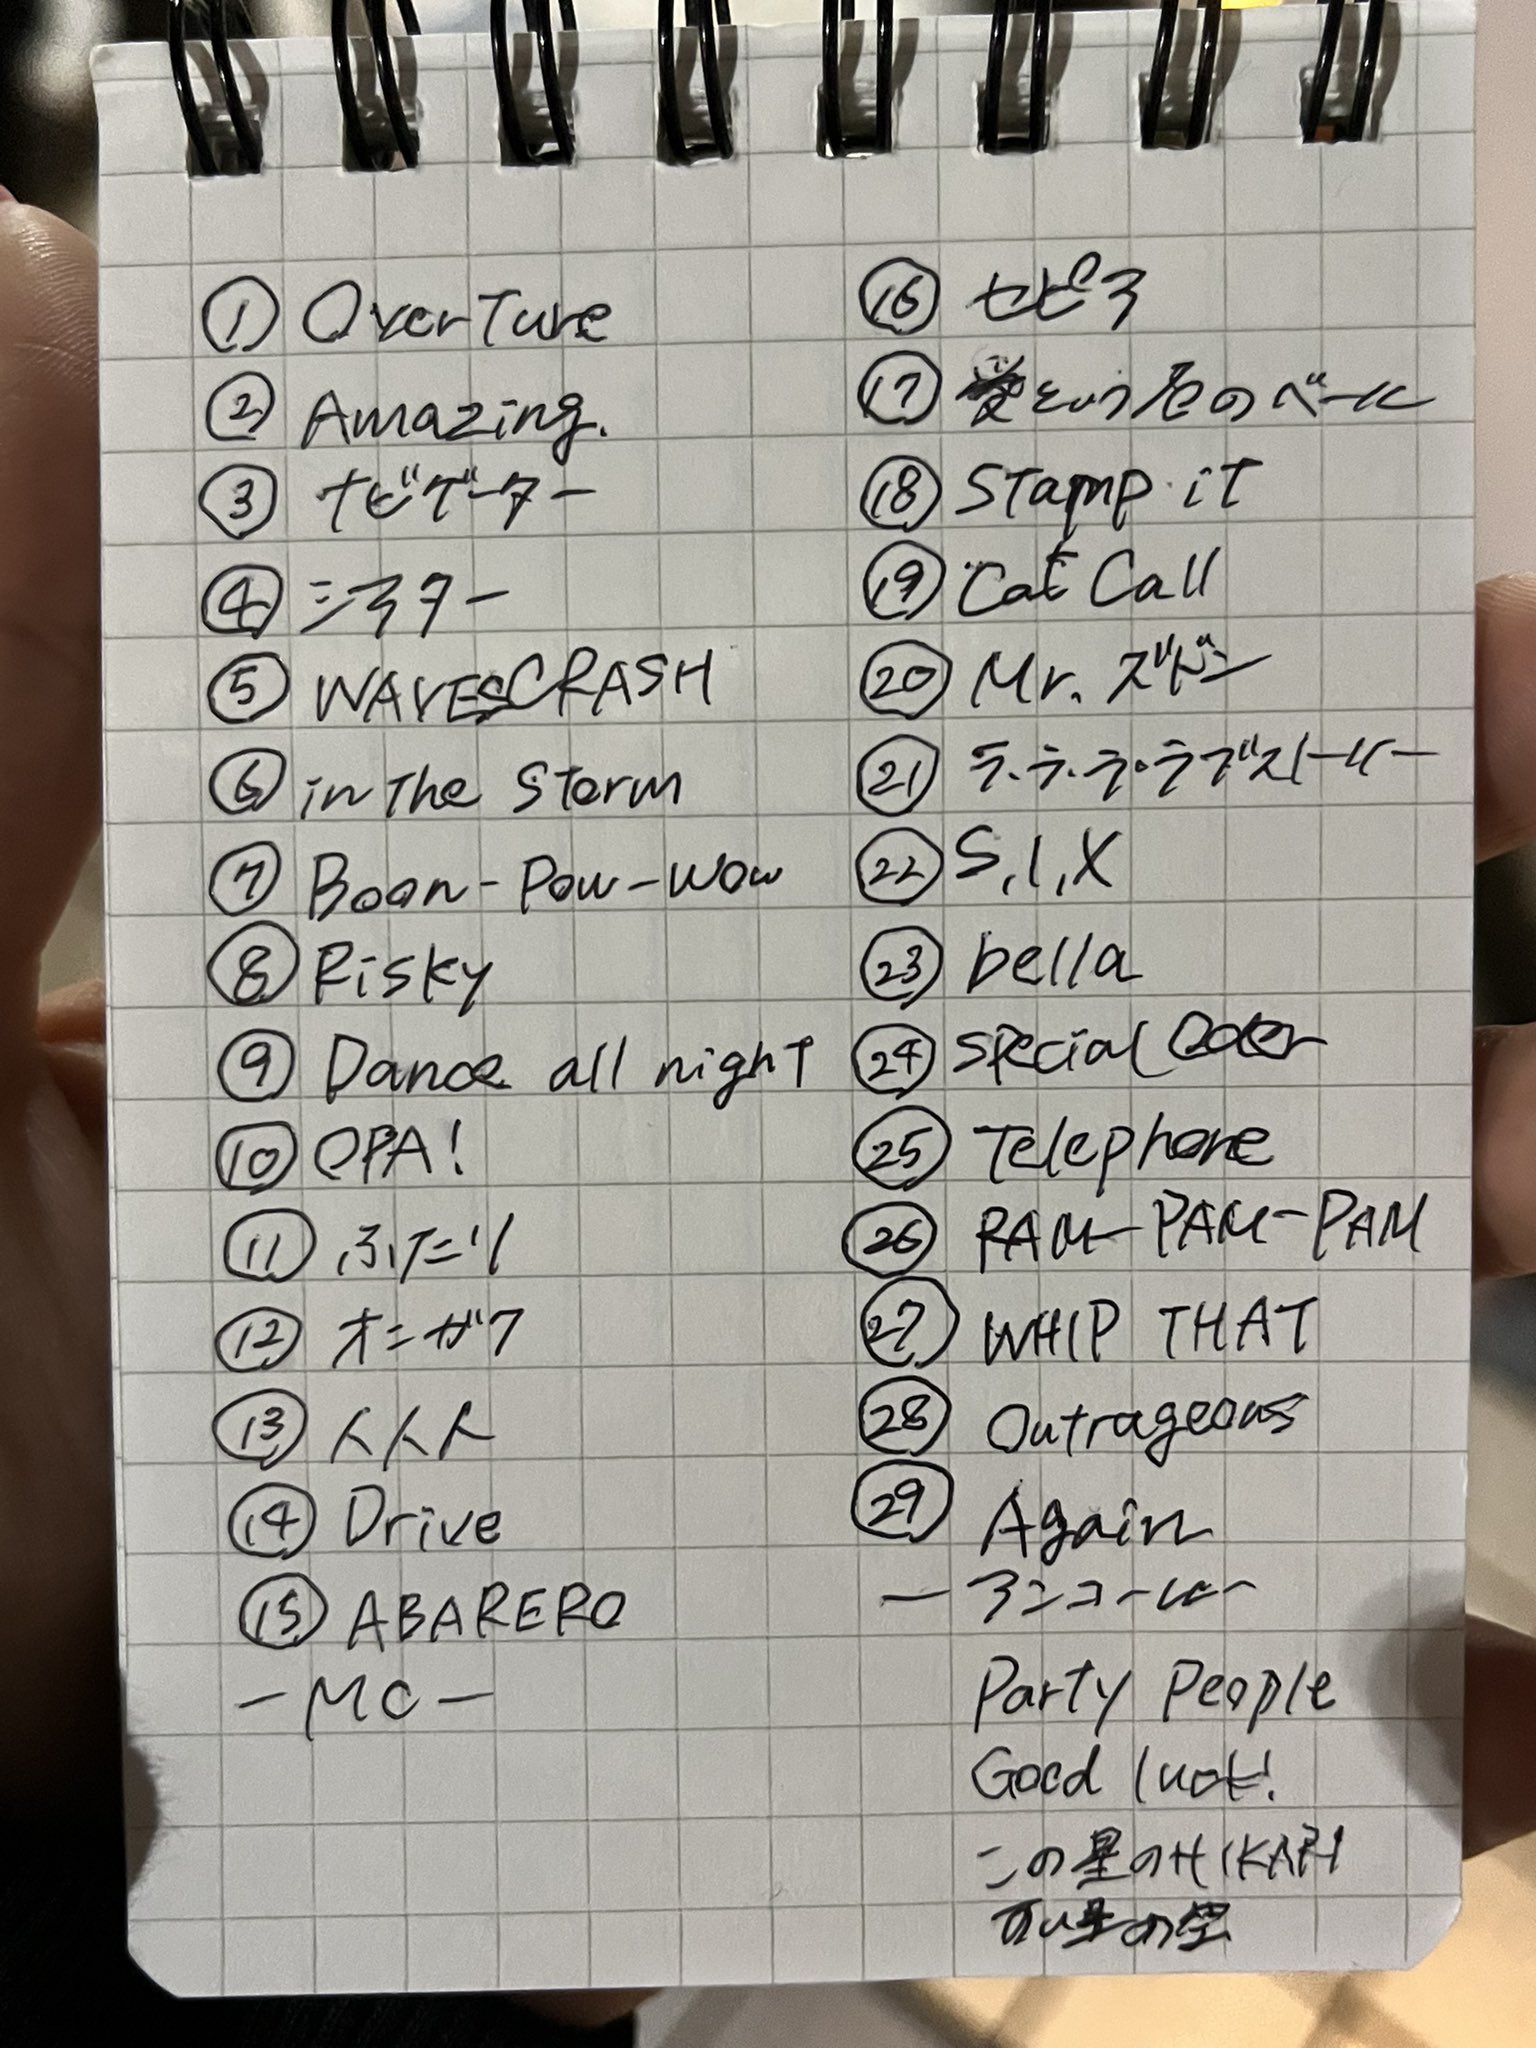 ① OverTure
② Amazing.
③ ナビゲーター
④ シアター
⑤ WAVESCRASH
⑥ in The Storm
⑦ Boon-Pow-Wow
⑧ Risky
⑨ Dance all night
⑩ OPA!
⑪ ふたり
⑫ オニガワ
⑬ 人人人
⑭ Drive
⑮ ABARERO
-MC-
⑯ セピア
⑰ 愛という名のベール
⑱ Stamp it
⑲ Cat Call
⑳ Mr.ズドン
㉑ ラ・ラ・ラ・ラブストーリー
㉒ S.I.X
㉓ bella
㉔ Special Color
㉕ Telephone
㉖ RAM-PAM-PAM
㉗ WHIP THAT
㉘ Outrageous
㉙ Again
-アンコール-
Party People
Good luck!
この星のHIKARI
の空